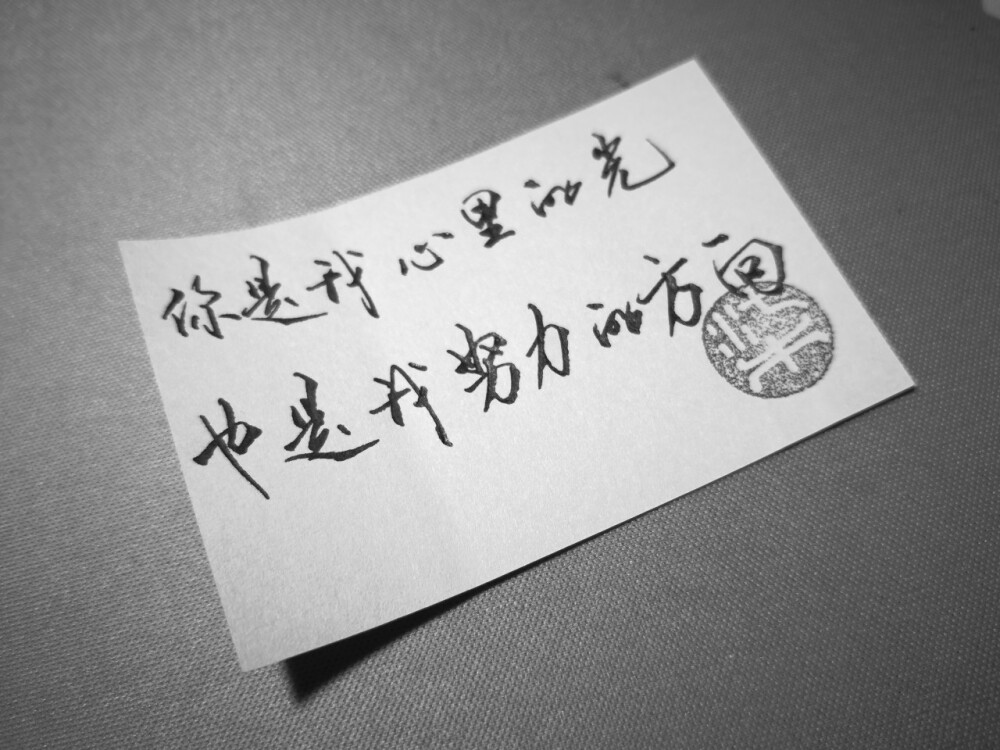 你是我心里的光
也是我努力的方向